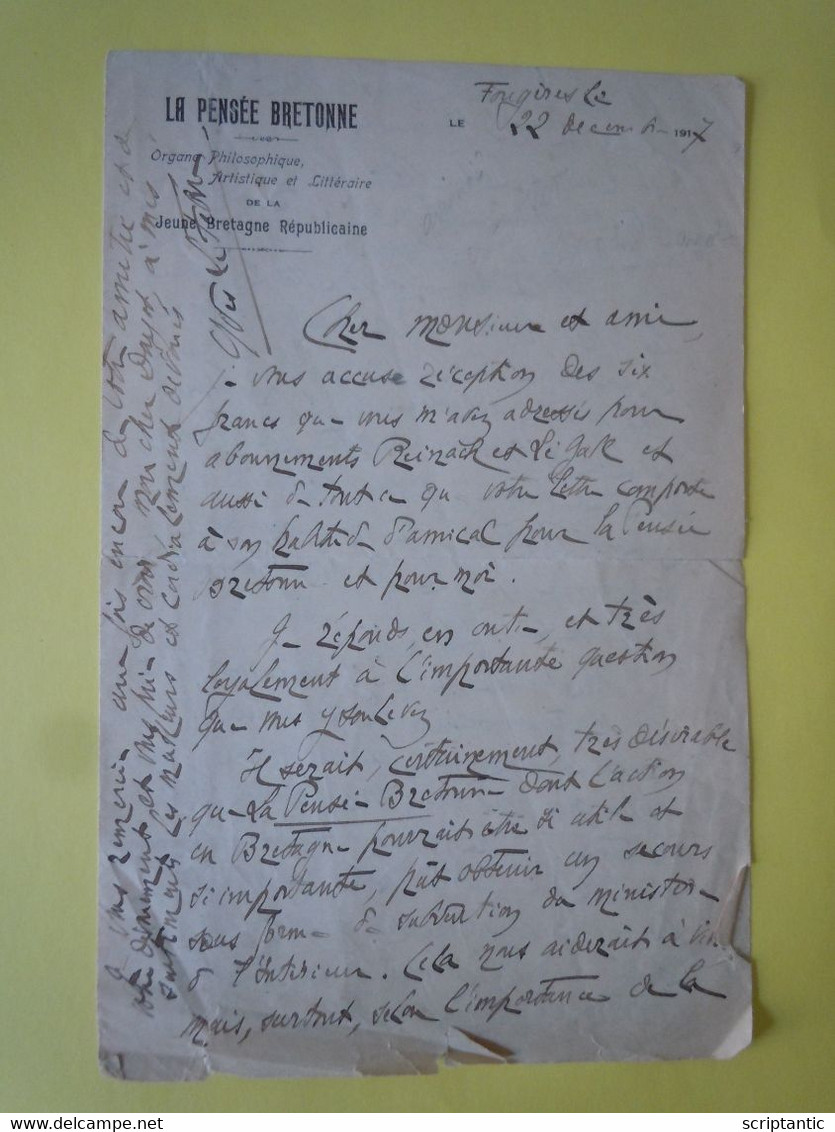 LA PENSÉE BRETONNE
Organe Philosophique,
Artistique et Littéraire
DE LA
Jeune Bretagne Républicaine
Fougères le
LE 22 décemb 1917
Cher monsieur et ami,
Je vous accuse réception des six
francs que vous m'avez adressés pour
abonnements Reinach et Le Gall et
aussi de tout ce que votre lettre comporte
à son habitude d'amical pour la Pensée
Bretonne et pour moi.
Je réponds, en outre, et très
loyalement à l'importante question
que vous y soulevez
Il serait, certainement, très désirable
que La Pensée Bretonne dont l'action
en Bretagne pourrait être si utile et
si importante, pût obtenir un secours
sous forme de subvention du ministère
de l'Intérieur. Cela nous aiderait à
mais, surtout, selon l'importance de la
Je vous remercie une fois encore de votre amitié et de
votre dévouement et vous prie de croire mon cher Dayot à mes
sentiments les meilleurs et cordialement dévoués
Yves Le Febvre
scriptantic